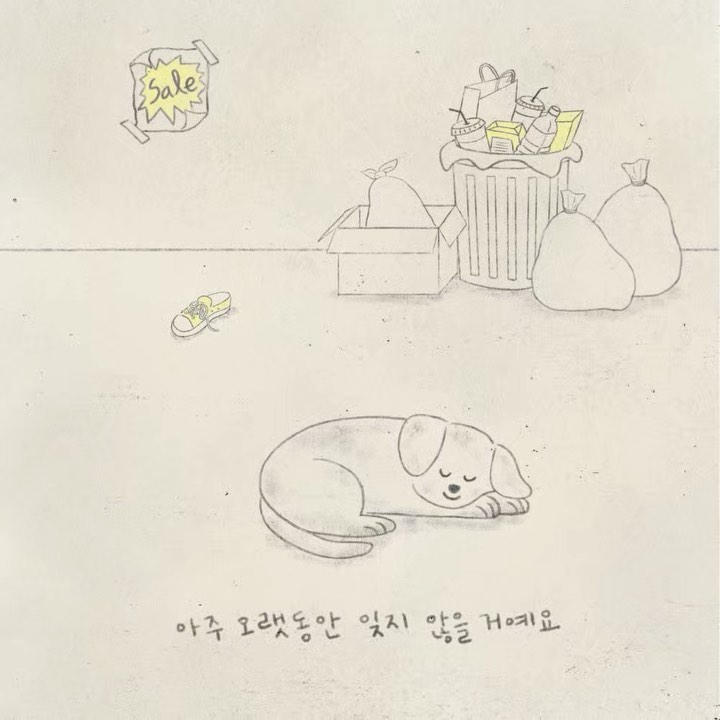 Sale
아주 오랫동안 잊지 않을 거예요